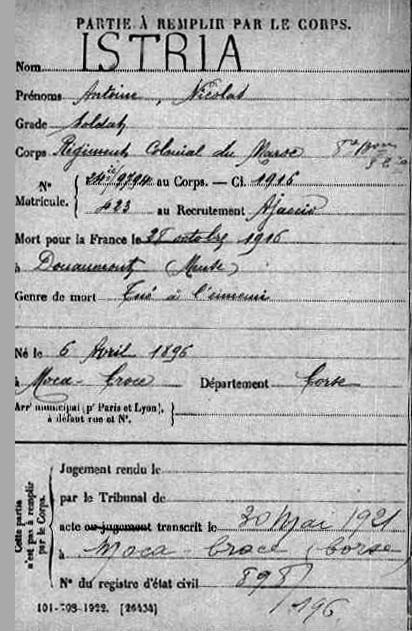 PARTIE À REMPLIR PAR LE CORPS.
Nom ISTRIA
Prénoms Antoine, Nicolas
Grade Soldat
Corps Régiment Colonial du Maroc 8e
N° Matricule. 9794 au Corps. — Cl. 1916
423 au Recrutement Ajaccio
Mort pour la France le 28 octobre 1916
à Douaumont (Meuse)
Genre de mort Tué à l'ennemi
Né le 6 Avril 1896
à Moca-Croce Département Corse
Arrt municipal (pr Paris et Lyon), à défaut rue et N°.
Cette partie n'est pas à remplir par le Corps.
Jugement rendu le
par le Tribunal de
acte ou jugement transcrit le 30 Mai 1921
à Moca-Croce (Corse)
N° du registre d'état civil
196
101-708-1922. [26434]